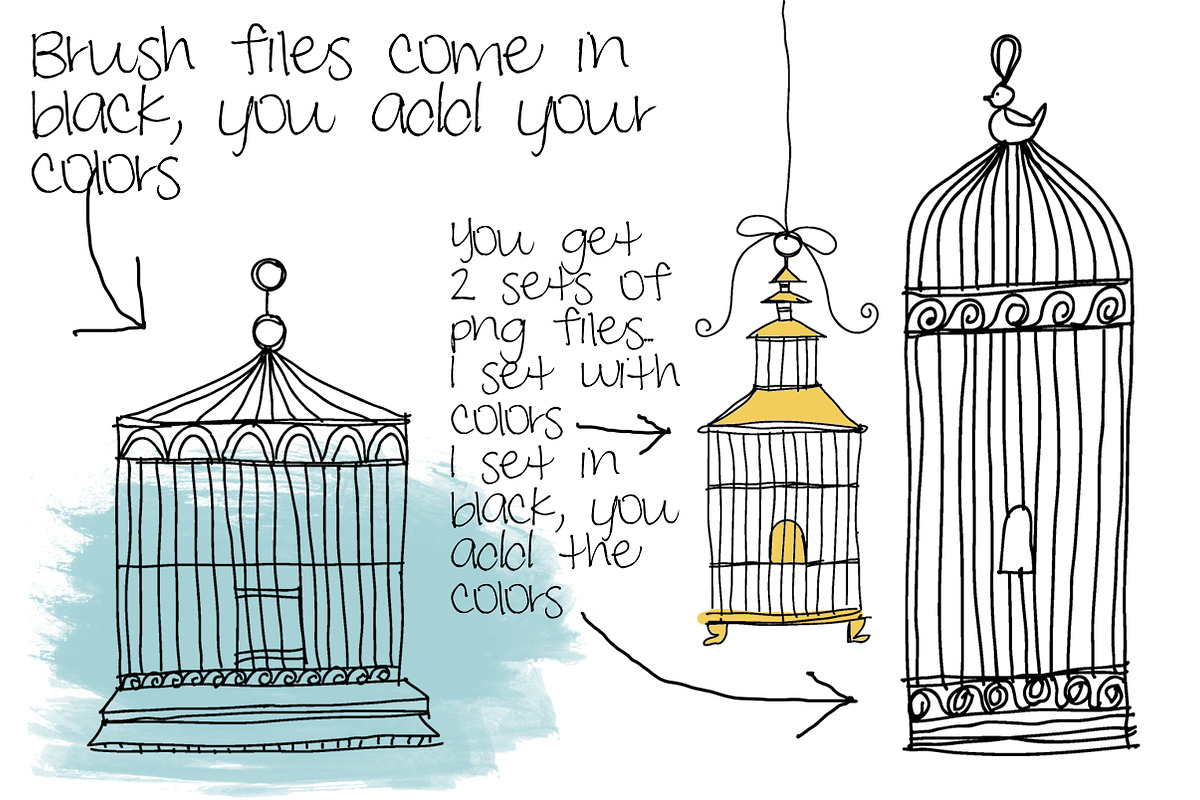 Brush files come in
black, you add your
colors
You get
2 sets of
png files...
1 set with
colors
1 set in
black, you
add the
colors